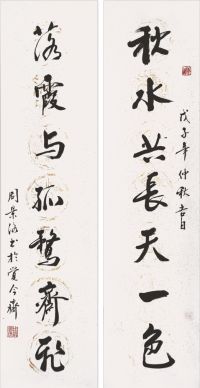 秋水共長天一色
戊子年仲秋吉日
落霞与孤鶩齊飛
周景洛书於愛今齋